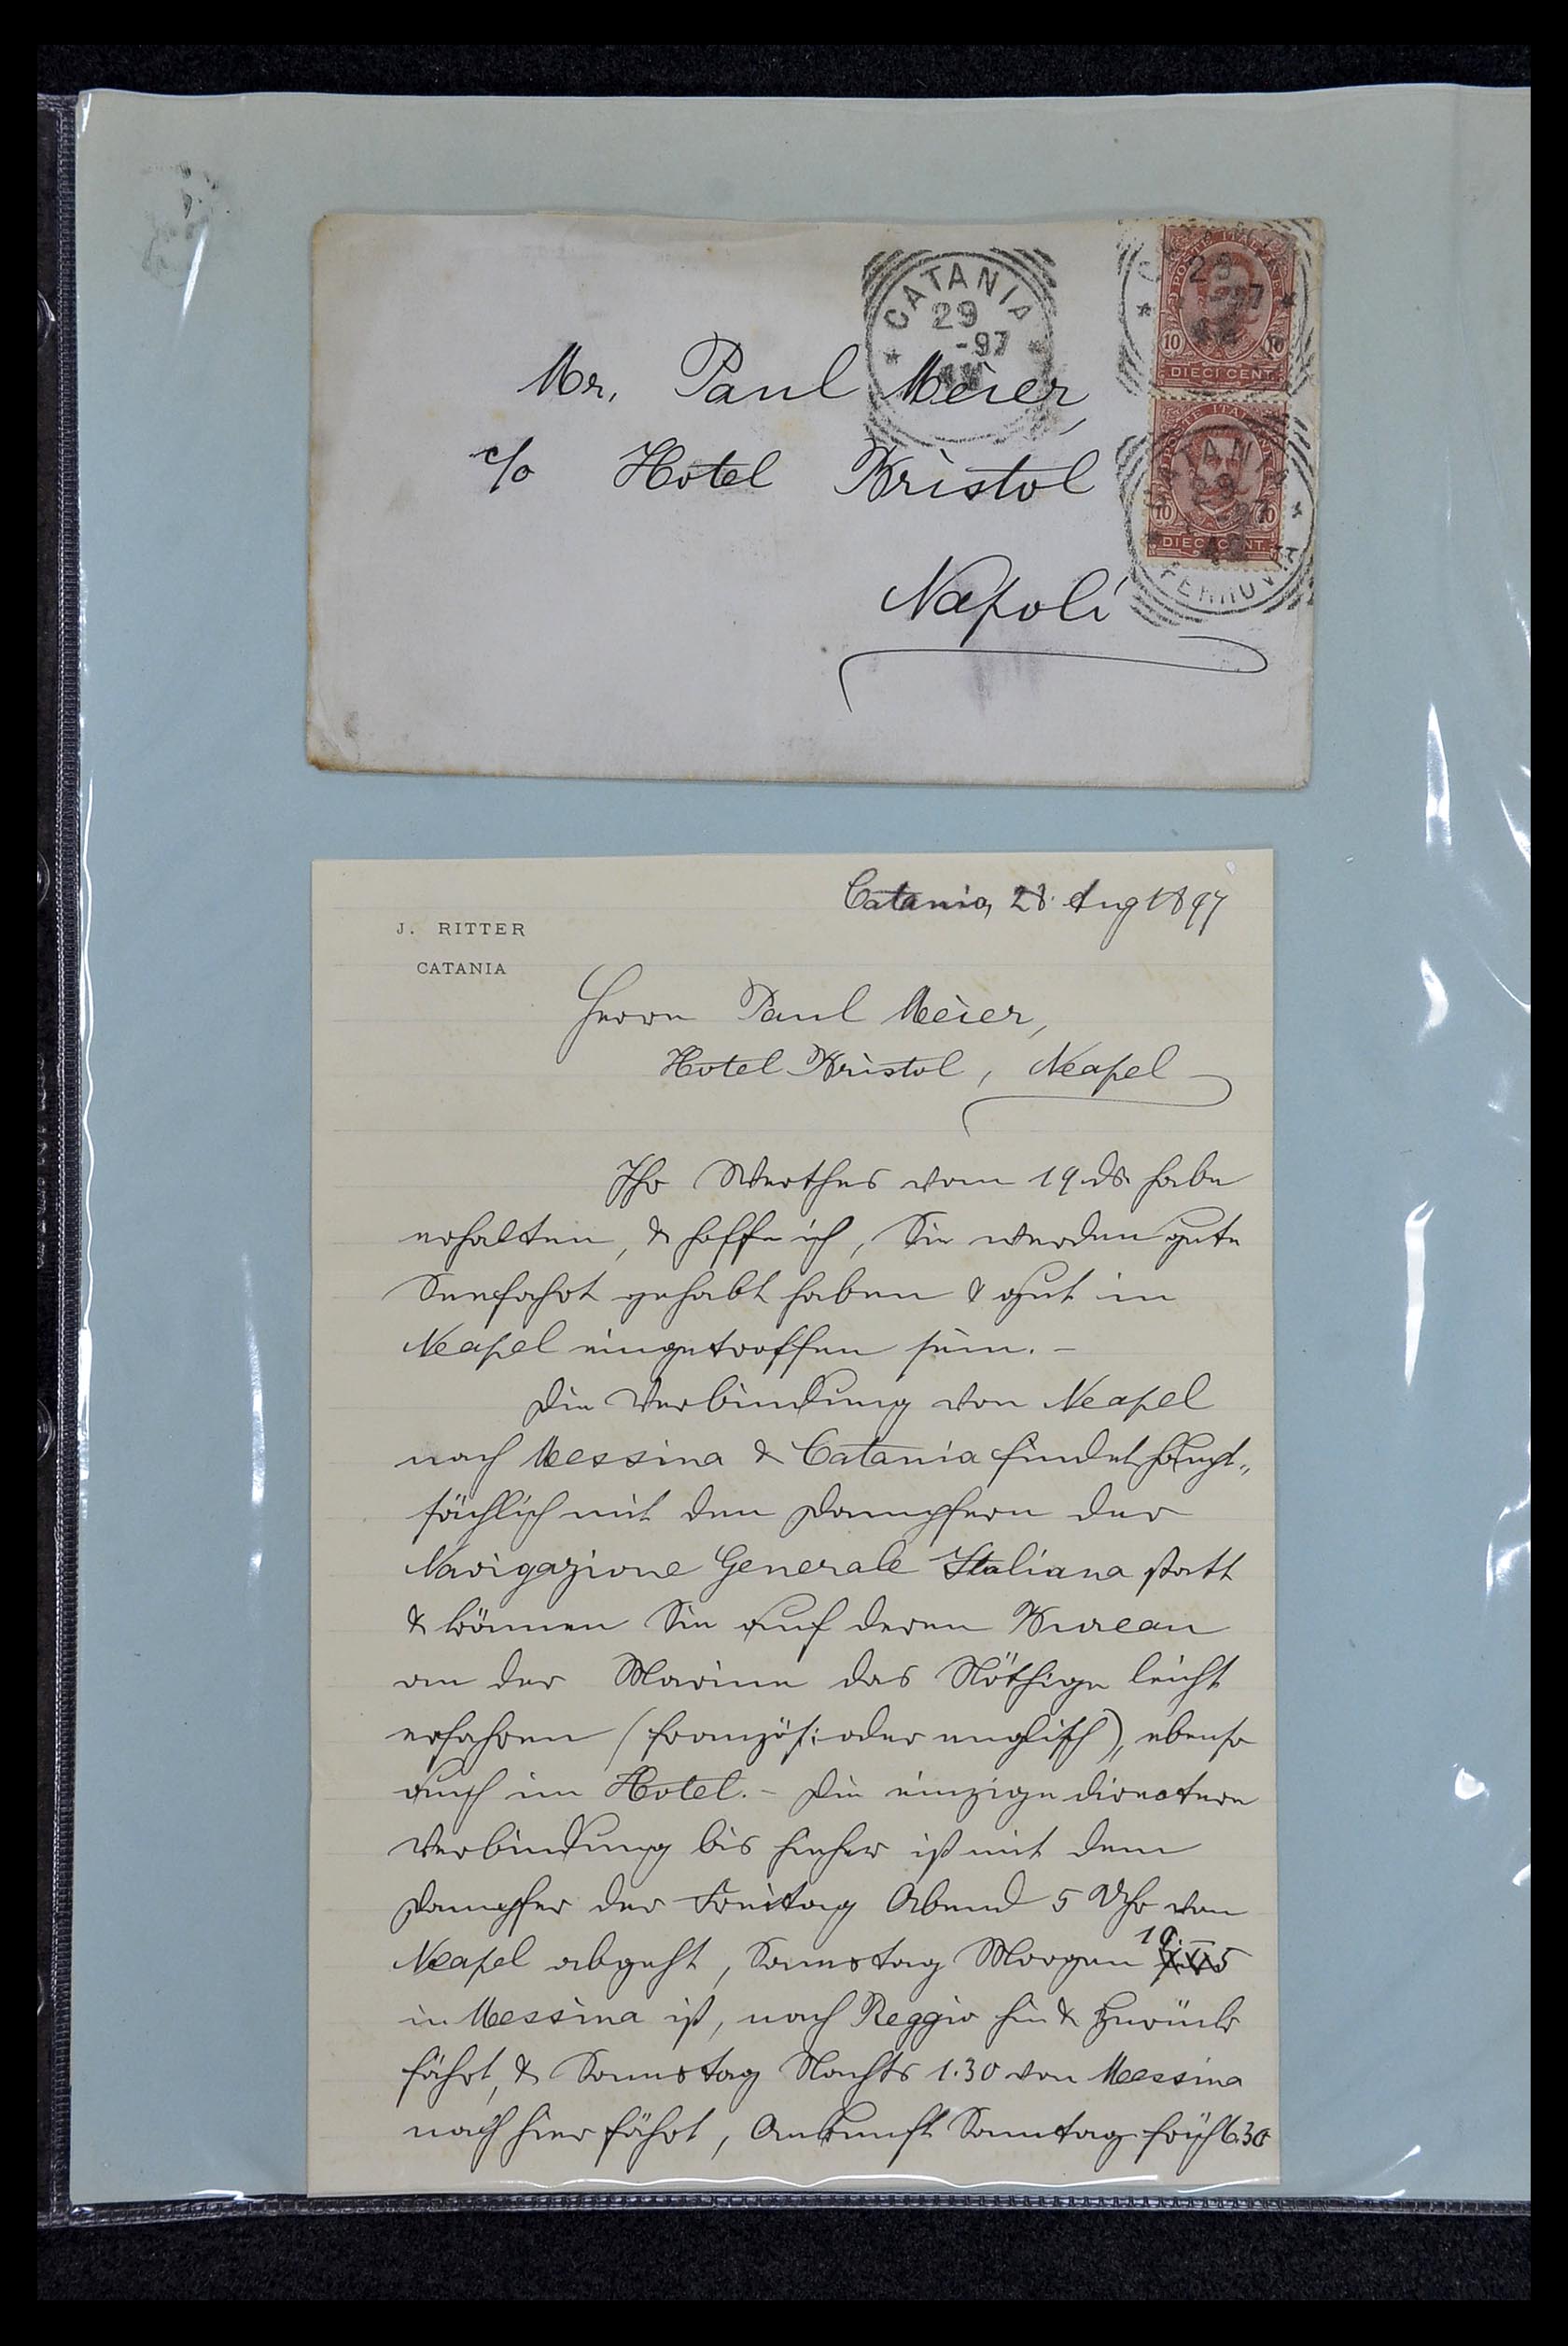 CATANIA
29
-97
POSTE ITALIANE
10 10
DIECI CENT.
POSTE ITALIANE
10 10
DIECI CENT.
CATANIA
29
-97
FERROVIA
Mr. Paul Meier,
c/o Hotel Bristol
Napoli
J. RITTER
CATANIA
Catania, 28. Aug 1897
Herrn Paul Meier,
Hotel Bristol, Neapel
Ihr Werthes vom 19. ds. habe
erhalten, & hoffe ich, Sie werden gute
Seefahrt gehabt haben & gut in
Neapel eingetroffen sein. –
Die Verbindung von Neapel
nach Messina & Catania findet haupt-
sächlich mit den Dampfern der
Navigazione Generale Italiana statt
& können Sie auf deren Bureau
an der Marine das Nöthige leicht
erfahren (französ: oder englisch), ebenso
auch im Hotel. – Die einzige directere
Verbindung bis hieher ist mit dem
Dampfer der Freitag Abend 5 Uhr von
Neapel abgeht, Samstag Morgen 10.
in Messina ist, nach Reggio hin & zurück
fährt, & Samstag Nachts 1.30 von Messina
nach hier fährt, Ankunft Sonntag früh 6.30